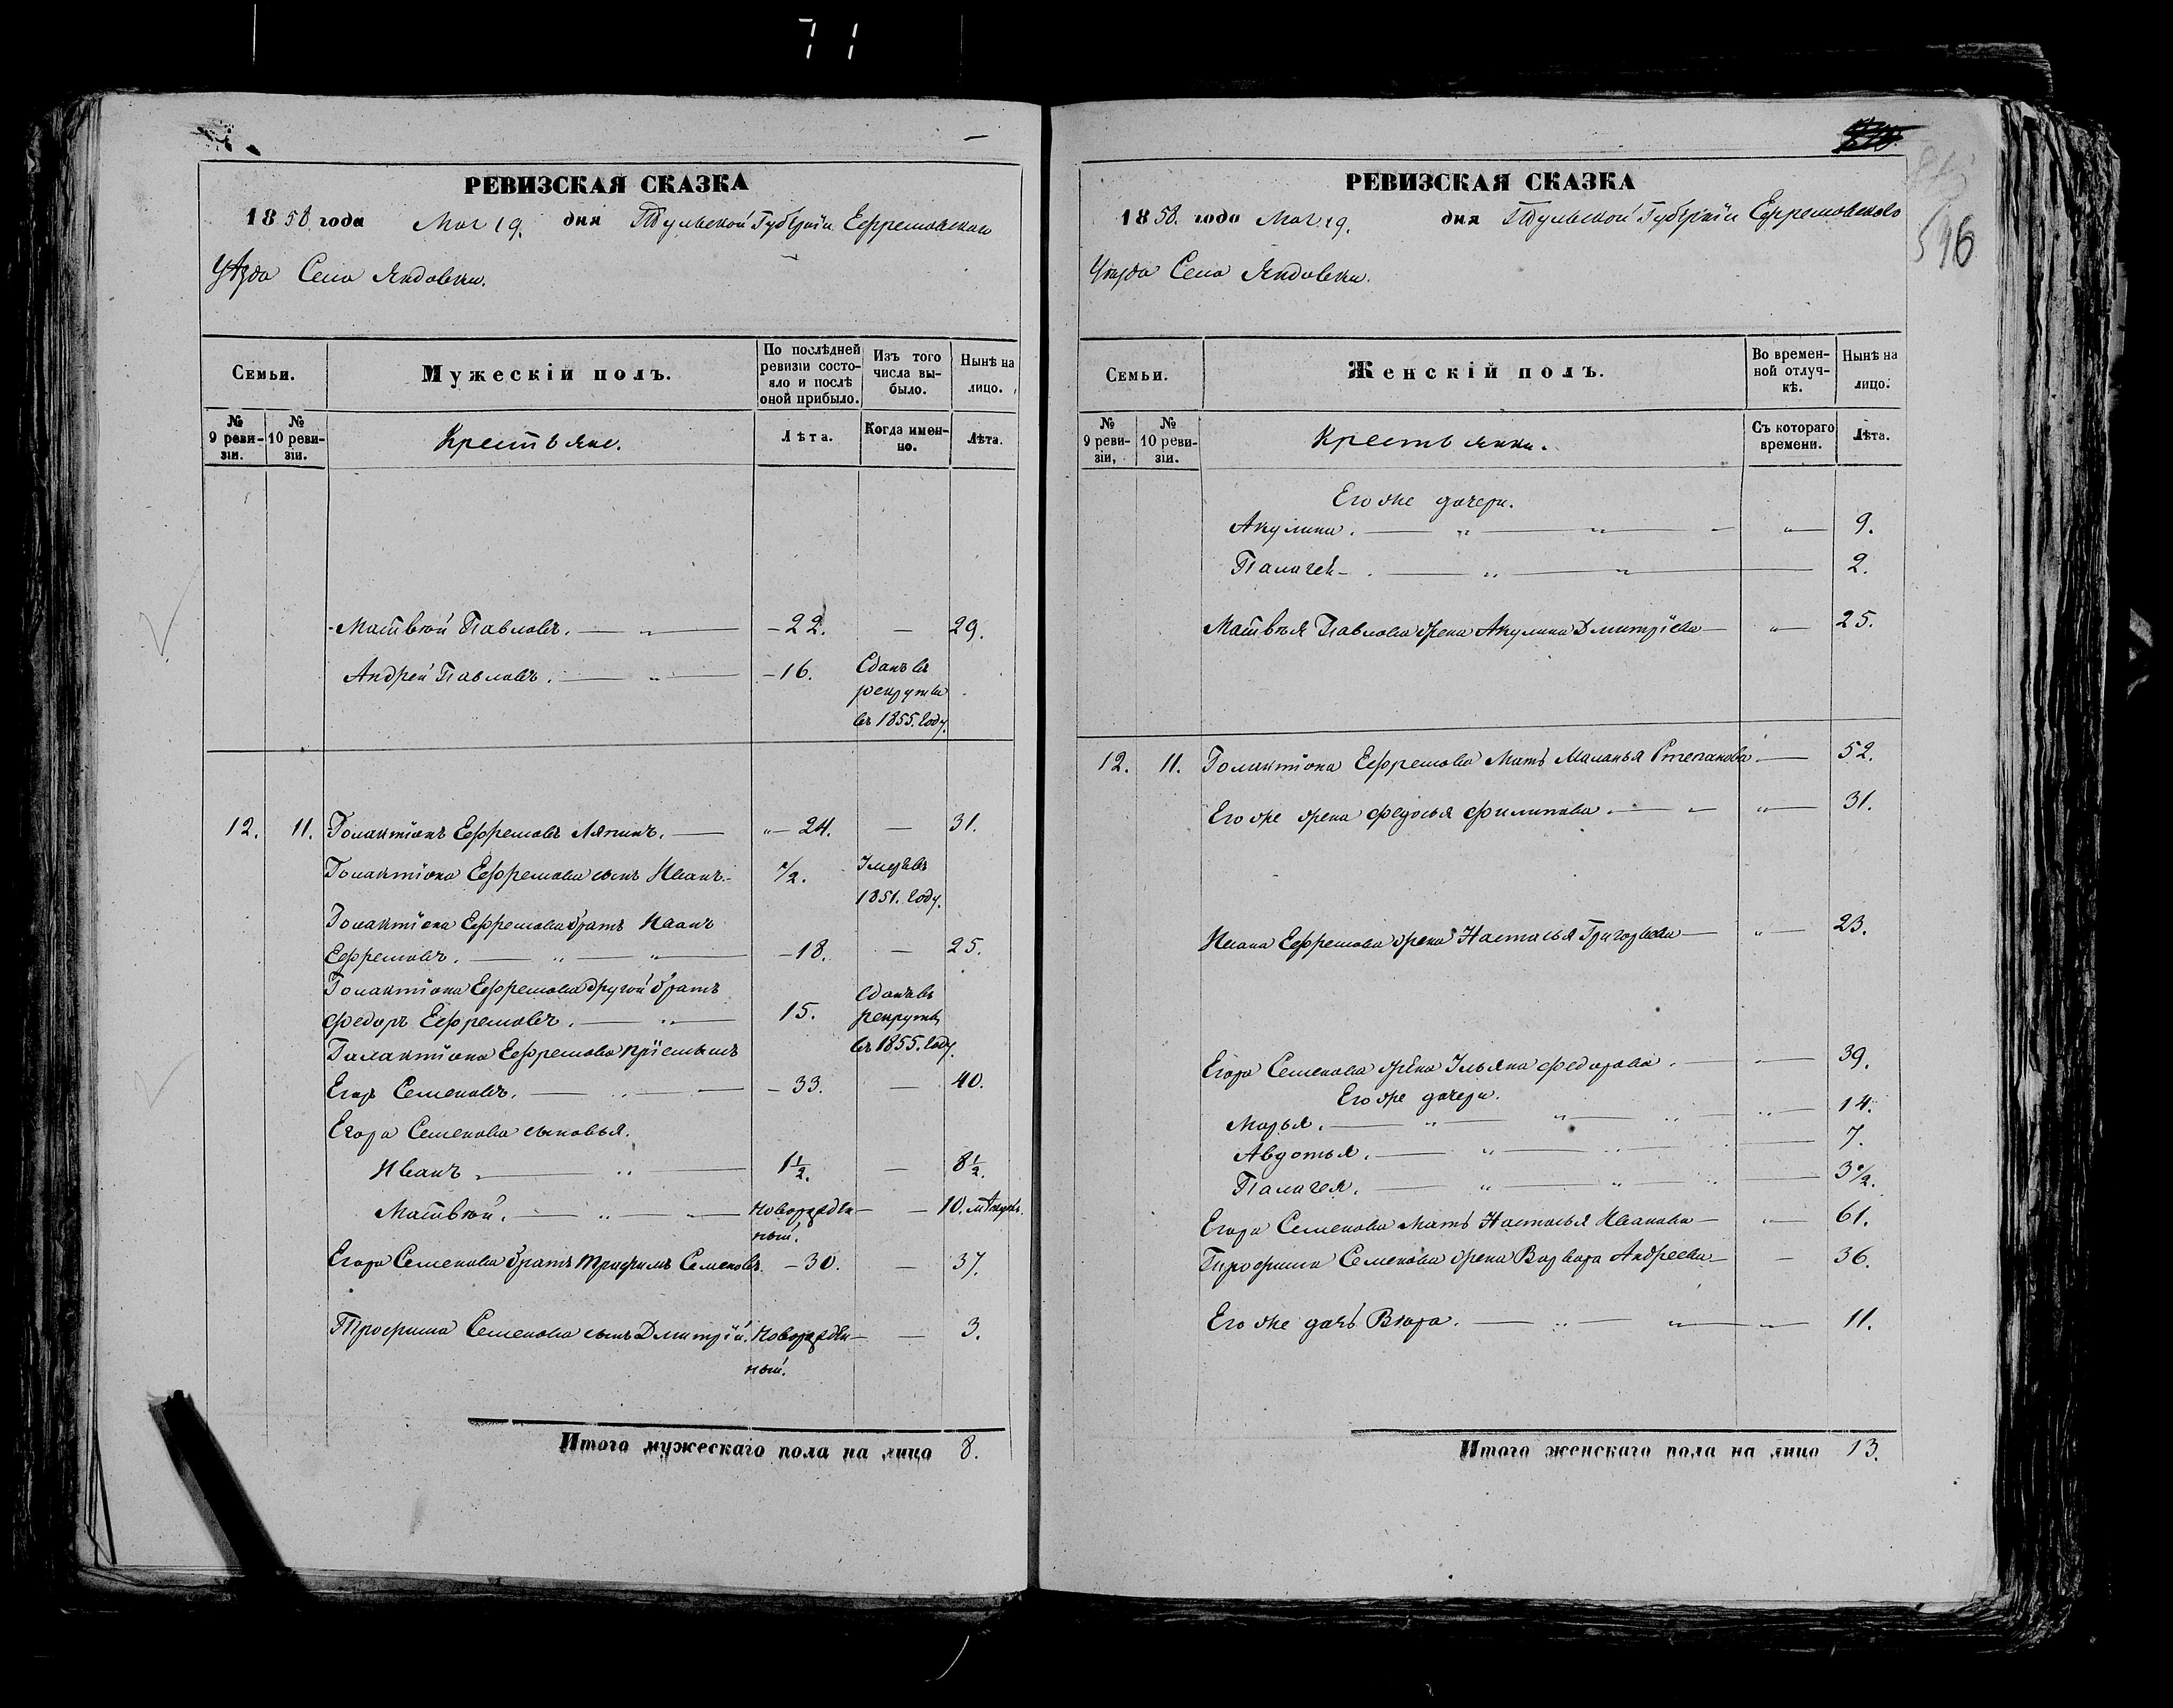 71
РЕВИЗСКАЯ СКАЗКА
1858 года Мая 19. дня Тульской Губерніи Ефремовскаго
Уѣзда Села Яндовки.
Семьи.
Мужескій полъ.
По послѣдней ревизіи состояло и послѣ оной прибыло.
Изъ того числа выбыло.
Нынѣ на лицо.
№ 9 ревизіи.
№ 10 ревизіи.
Крестьяне.
Лѣта.
Когда именно.
Лѣта.
Матвѣй Павловъ. — 22. — 29.
Андрей Павловъ. — 16. Сданъ въ
рекруты
въ 1855. году.
12. 11. Голактіонъ Ефремовъ Ляпинъ. — 24. — 31.
Голактіона Ефремова сынъ Иванъ. ½. Умеръ въ
1851. году.
Голактіона Ефремова братъ Иванъ
Ефремовъ. — 18. — 25.
Голактіона Ефремова другой братъ
Федоръ Ефремовъ. — 15. Сданъ въ
рекруты
въ 1855. году.
Галактіона Ефремова пріемышъ
Егоръ Семеновъ. — 33. — 40.
Егора Семенова сыновья.
Иванъ. — 1½. — 8½.
Матвѣй. — новорожден- — 10. мѣсяцъ.
ный.
Егора Семенова братъ Трофимъ Семеновъ. — 30. — 37.
Трофима Семенова сынъ Дмитрій. новорожден- — 3.
ный.
Итого мужескаго пола на лицо 8.
РЕВИЗСКАЯ СКАЗКА
1858. года Мая 19. дня Тульской Губерніи Ефремовскаго
Уѣзда Села Яндовки.
596
Семьи.
Женскій полъ.
Во временной отлучкѣ.
Нынѣ на лицо.
№ 9 ревизіи,
№ 10 ревизіи.
Крестьянки.
Съ котораго времени.
Лѣта.
Его же дочери.
Акулина. — 9.
Палагея — 2.
Матвѣя Павлова жена Акулина Дмитріева — 25.
12. 11. Голактіона Ефремова Мать Маланья Степанова — 52.
Его же жена Федосья Филипова. — 31.
Ивана Ефремова жена Настасья Григорьева — 23.
Егора Семенова жена Ульяна Федорова. — 39.
Его же дочери.
Марья. — 14.
Авдотья. — 7.
Палагея. — 3½.
Егора Семенова Мать Настасья Иванова — 61.
Трофима Семенова жена Варвара Андреева — 36.
Его же дочь Вѣра. — 11.
Итого женскаго пола на лицо 13.